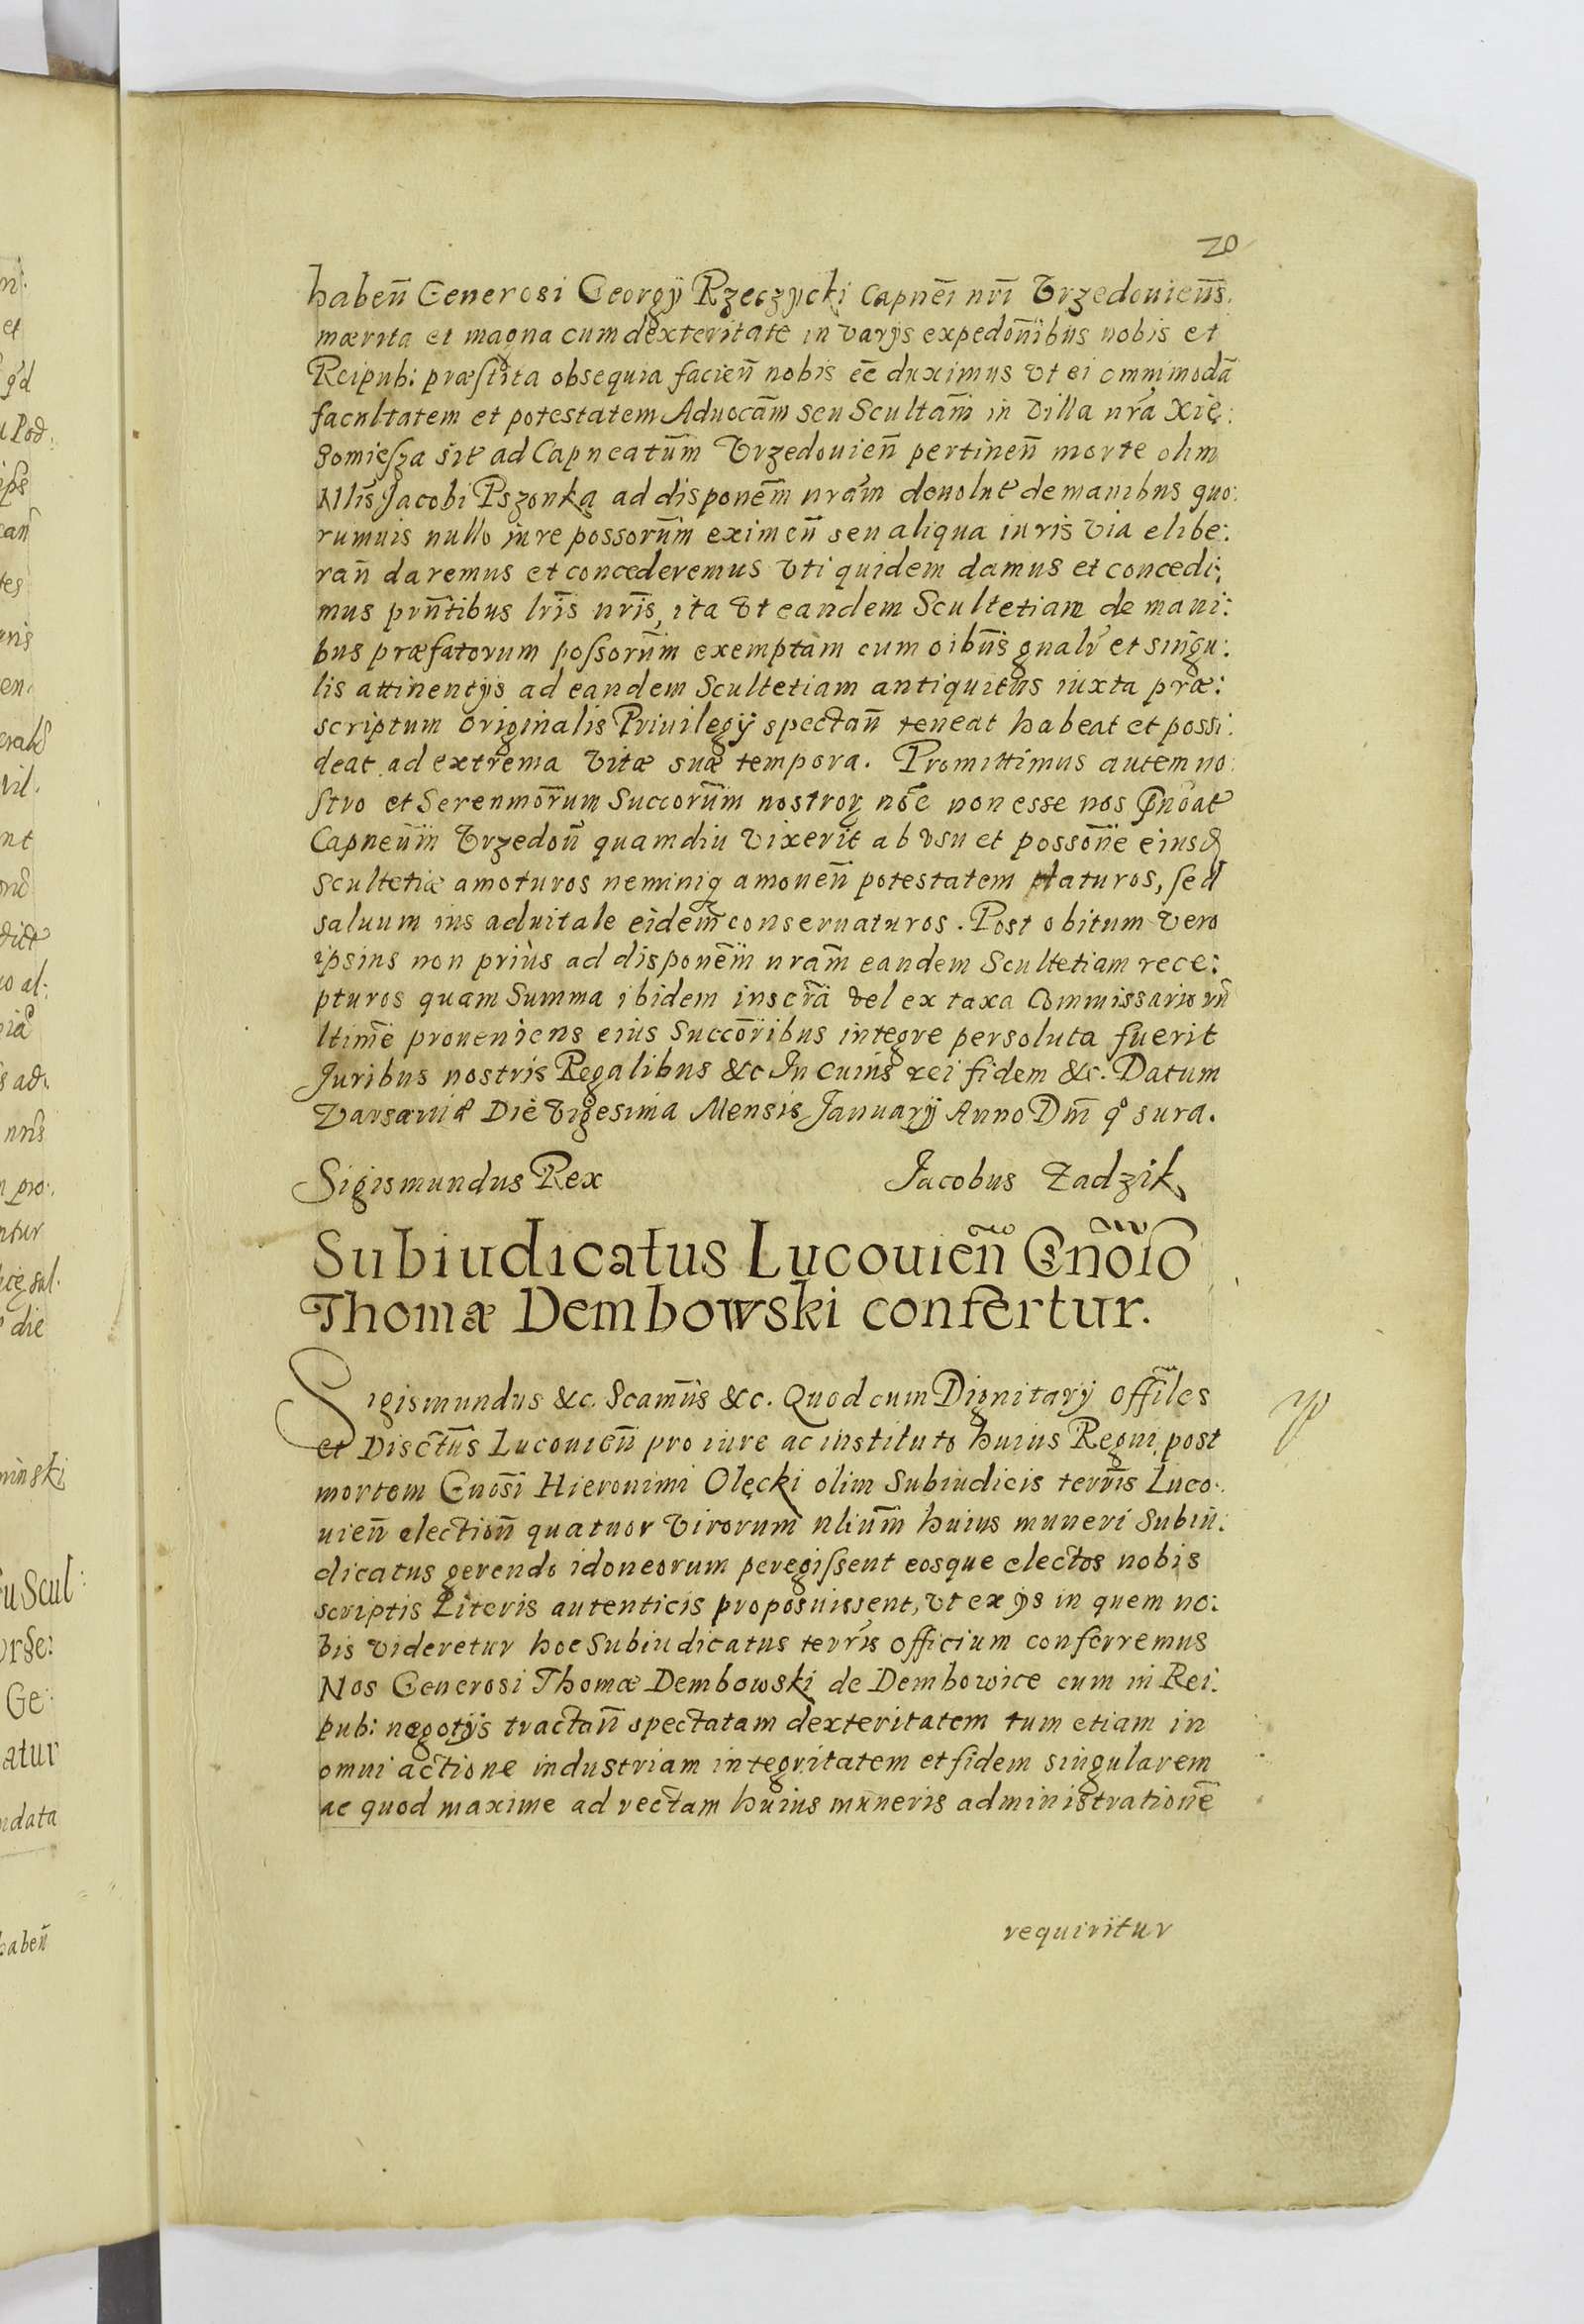 20
habeñ Generosi Georgÿ Rzeczycki Capneĩ nrĩ Vrzedouieñs.
mærita et magna cum dexteritate in varÿs expedoñibus nobis et
Reipub: præſtita obsequia facieñ nobis eẽ duximus vt ei omnimodã
facultatem et potestatem Aduocãm seu Scultãm in villa nrã Xię:
Somieſza sit ad Capneatũm Vrzedouieñ pertineñ morte olim
Nlis̃ Jacobi Pszonka ad disponẽm nrãm deuolut de manibus quo:
rumuis nullo iure possorũm eximeñ seu aliqua iuris via elibe:
rañ daremus et concederemus vti quidem damus et concedi:
mus prñtibus lrĩs nrĩs, ita vt eandem Scultetiam de mani:
bus præfatorum poſsorũm exemptam cum oibũs gnalr̃ et singu:
lis attinentÿs ad eandem Scultetiam antiquitus iuxta præ:
scriptum originalis Priuilegÿ spectañ teneat habeat et possi:
deat ad extrema vitæ suæ tempora. Promittimus autem no:
ſtro et Serenmõrum Succorũm nostror noẽ non esse nos
Capneũm Vrzedoũ quamdiu vixerit ab vsu et possoñe eiusd
Scultetiæ amoturos neminiq amoueñ potestatem daturos, ſed
saluum ius aduitale eidem conseruaturos. Post obitum vero
ipsius non priùs ad disponẽm nrãm eandem Scultetiam rece:
pturos quam Summa ibidem inscrã vel ex taxa Commissariorũ
ltimẽ proueniens eius Succorĩbus integre persoluta fuerit
Juribus nostris Regalibus &c In cuius rei fidem &c. Datum
Varsaviæ Die vigesima Mensis Januarÿ Anno Dm̃ qº sura.
Sigismundus Rex Jacobus Zadzik
Subiudicatus Lucouieñ Gnõiõ
Thomæ Dembowski confertur.
Sigismundus &c. Scamũs &c. Quod cum Dignitarÿ offĩles
et Disctũs Lucouieñ pro iure ac instituto huius Regni post
mortem Gnõsi Hieronimi Olęcki olim Subiudicis terrĩs Luco:
uieñ electioñ quatuor virorum nliũm huius muneri Subiu:
dicatus gerendo idoneorum peregiſsent eosque electos nobis
scriptis Literis autenticis proposuissent, vt ex ÿs in quem no:
bis videretur hoc Subiudicatus terrĩs officium conferremus
Nos Generosi Thomæ Dembowski de Dembowice cum in Rei:
pub: negotÿs tractañ spectatam dexteritatem tum etiam in
omni actione industriam integritatem et fidem singularem
ac quod maxime ad rectam huius muneris administrationẽ
requiritur